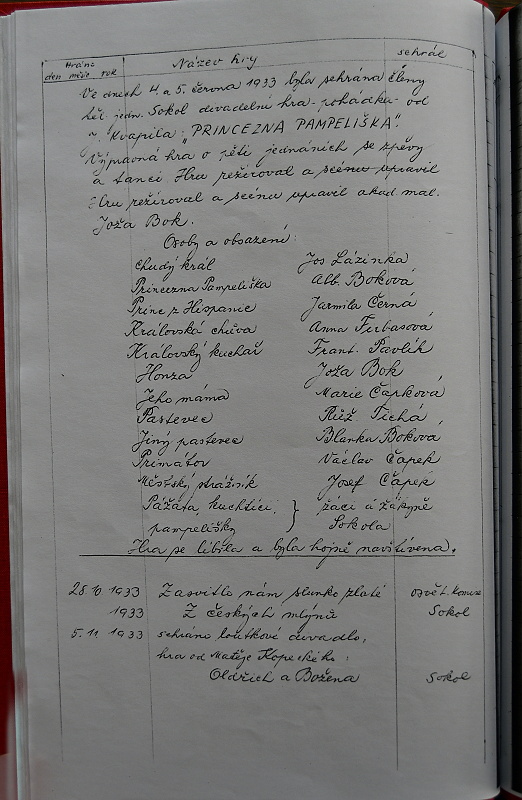 Hráno Název hry sehrál
den měsíc rok
Ve dnech 4. a 5. června 1933 byla sehrána členy
těl. jedn. Sokol divadelní hra-pohádka-od
Kvapila "PRINCEZNA PAMPELIŠKA".
Výpravná hra o pěti jednáních se zpěvy
a tanci. Hru režíroval a scénu upravil
Hru režíroval a scénu upravil akad. mal.
Joža Bok.
Osoby a obsazení:
Chudý král Jos Lázinka
Princezna Pampeliška Alb. Boková
Princ z Hispanie Jarmila Černá
Královská chůva Anna Furbasová
Královský kuchař Frant. Pavlák
Honza Joža Bok
Jeho máma Marie Čapková
Pastevec Růž. Tichá
Jiný pastevec Blanka Boková
Primátor Václav Čapek
Městský strážník Josef Čapek
Pážata, kuchtíci, } žáci a žákyně
pampelišky Sokola
Hra se líbila a byla hojně navštívena.
28.10 1933 Zasvitlo nám slunko zlaté osvět. komise
1933 Z českých mlýnů Sokol
5.11 1933 sehráno loutkové divadlo,
hra od Matěje Kopeckého:
Oldřich a Božena Sokol